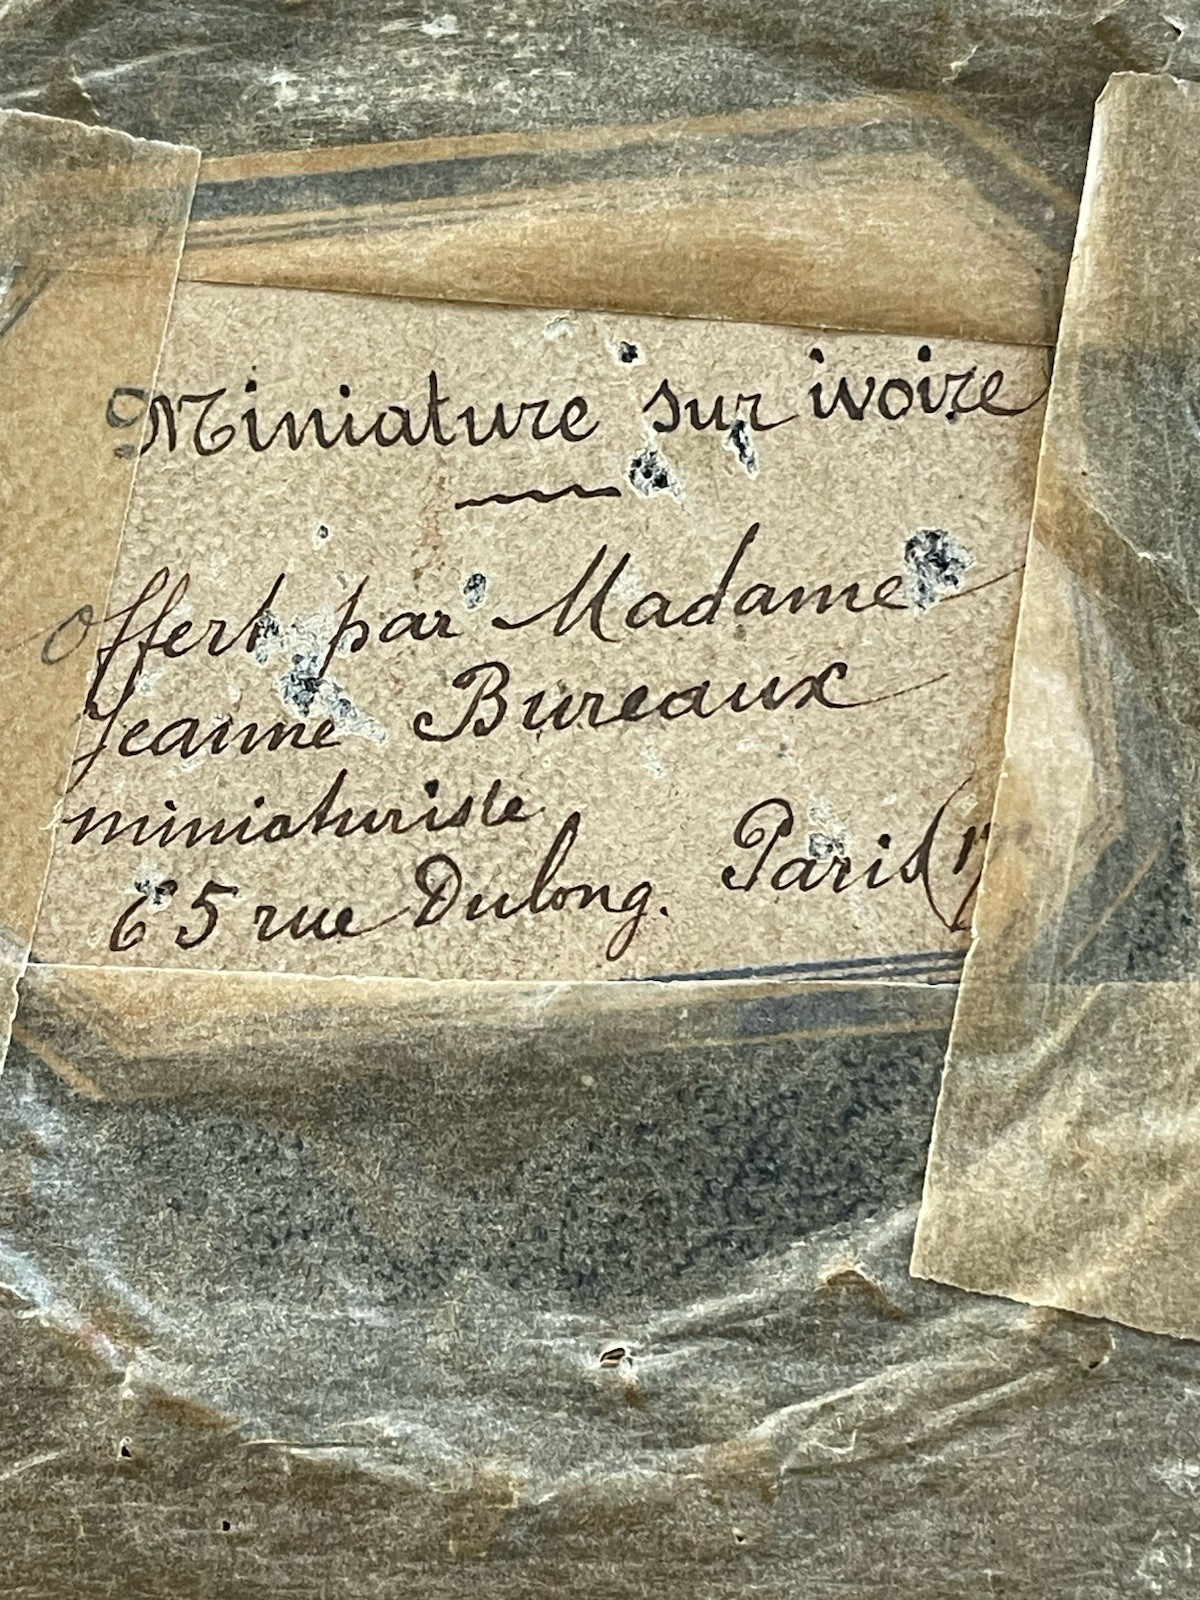 Miniature sur ivoire
offert par Madame
Jeanne Bureaux
miniaturiste
65 rue Dulong. Paris (17